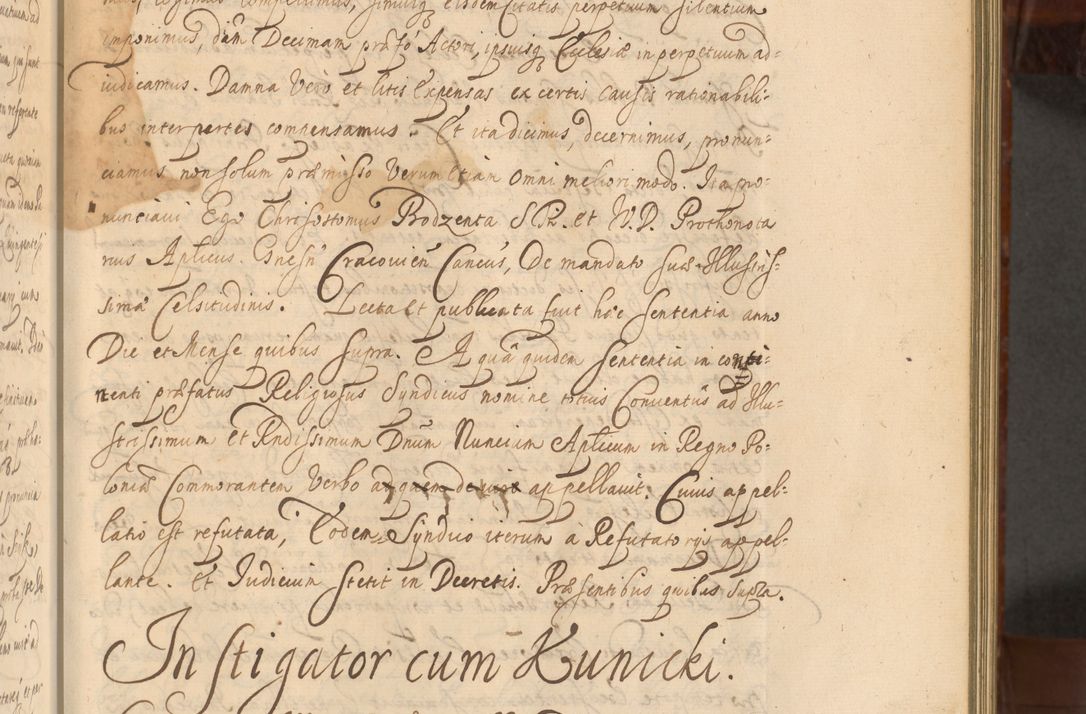 imponimus, dãm Decimam præfó Actori, ipsiusq Ecclesiæ in perpetuum ad=
iudicamus. Damna Vero et litis Expensas ex certis causis rationabili=
bus inter partes compensamus. Et ita dicimus, decernimus, pronun=
ciamus non solum præmisso Verum Etiam omni meliori modo. Ita pro=
nunciavi Ego Chrisostomus Bodzenta S.R. et V.D. Prothonota
rius Aplicus. Gnesñ Cracovień Cancus, De mandato suæ Illustris=
simæ Celsitudinis. Lecta et publicata fuit hæc sententia anno
Die et Mense quibus supra. A quâ quidem sententia in conti=
nenti præfatus Religiosus Syndicus nomine totius Conventûs ad Illu=
strissimum et Rndissimum Dnum Nuncium Aplicum in Regno Po=
loniæ Commorantem Verbo appellavit. Cuius appel=
latio est refutata, Eodem Syndico iterum à Refutatorijs appel=
lante. Et Iudicium stetit in Decretis. Præsentibus quibus supra.
Instigator cum Kunicki.